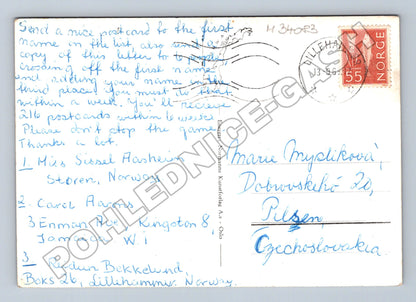 Send a nice postcard to the first
name in the list, also send a
copy of this letter to 6 people
crossing off the first name
and adding your name in the
third place. You must do that
within a week. You'll recieve
216 postcards within 6 weeks.
Please don't stop the game.
Thanks a lot.
1. Miss Sissel Aasheim
Storen, Norway
2. Carol Adams
3 Enman Rd Kingston 8
Jamaica W 1
3. Bekkelund
Boks 26, Lillehammer, Norway.
M 34083
LILLEHAMMER
NORGE
55
Marie Myslíková,
Dobrovského 20,
Pilsen,
Czechoslovakia
Kunstforlag A.s - Oslo
POHLEDNICE-G